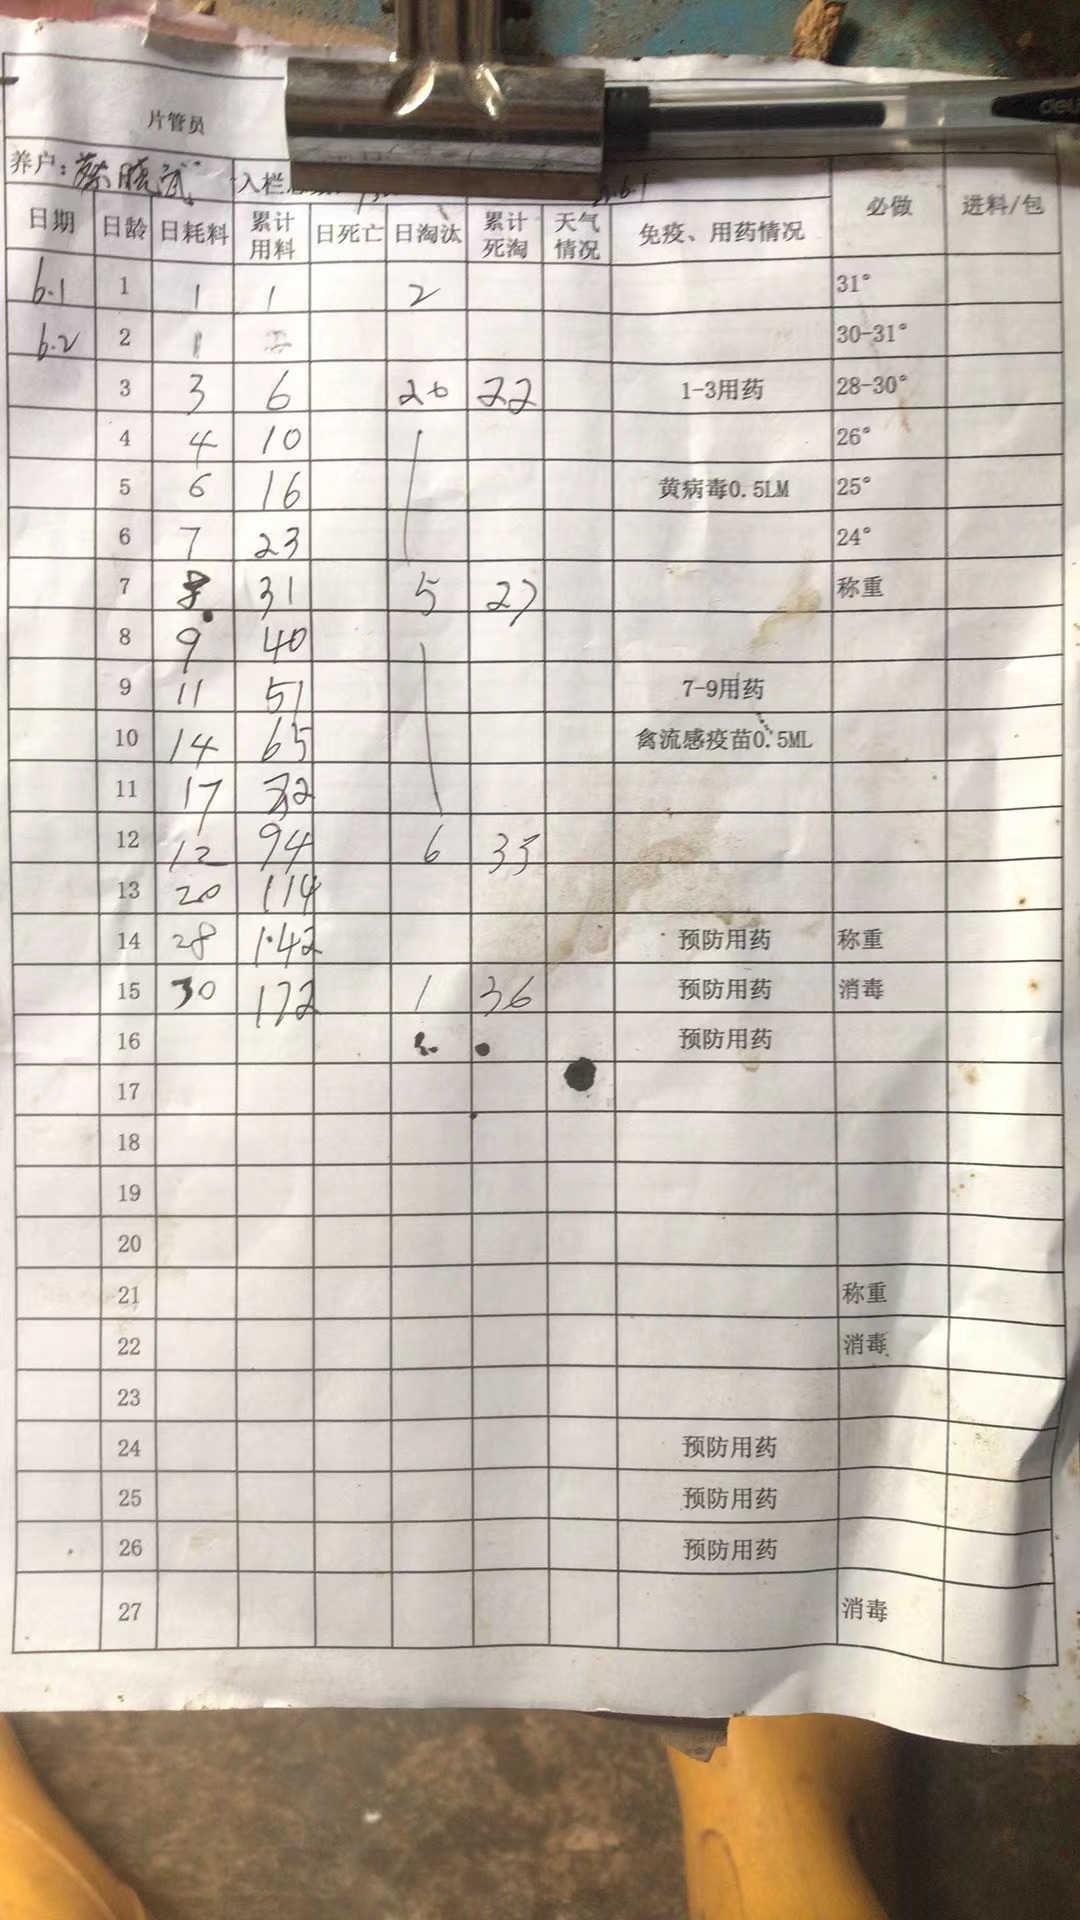 deli
片管员
养户: 蔡晓武 入栏总数: 6.1
日期 日龄 日耗料 累计用料 日死亡 日淘汰 累计死淘 天气情况 免疫、用药情况 必做 进料/包
6.1 1 1 1 2 31°
6.2 2 1 30-31°
3 3 6 20 22 1-3用药 28-30°
4 4 10 26°
5 6 16 黄病毒0.5LM 25°
6 7 23 24°
7 8 31 5 27 称重
8 9 40
9 11 51 7-9用药
10 14 65 禽流感疫苗0.5ML
11 17
12 12 94 6 35
13 20 114
14 28 142 预防用药 称重
15 30 172 1 36 预防用药 消毒
16 预防用药
17
18
19
20
21 称重
22 消毒
23
24 预防用药
25 预防用药
26 预防用药
27 消毒